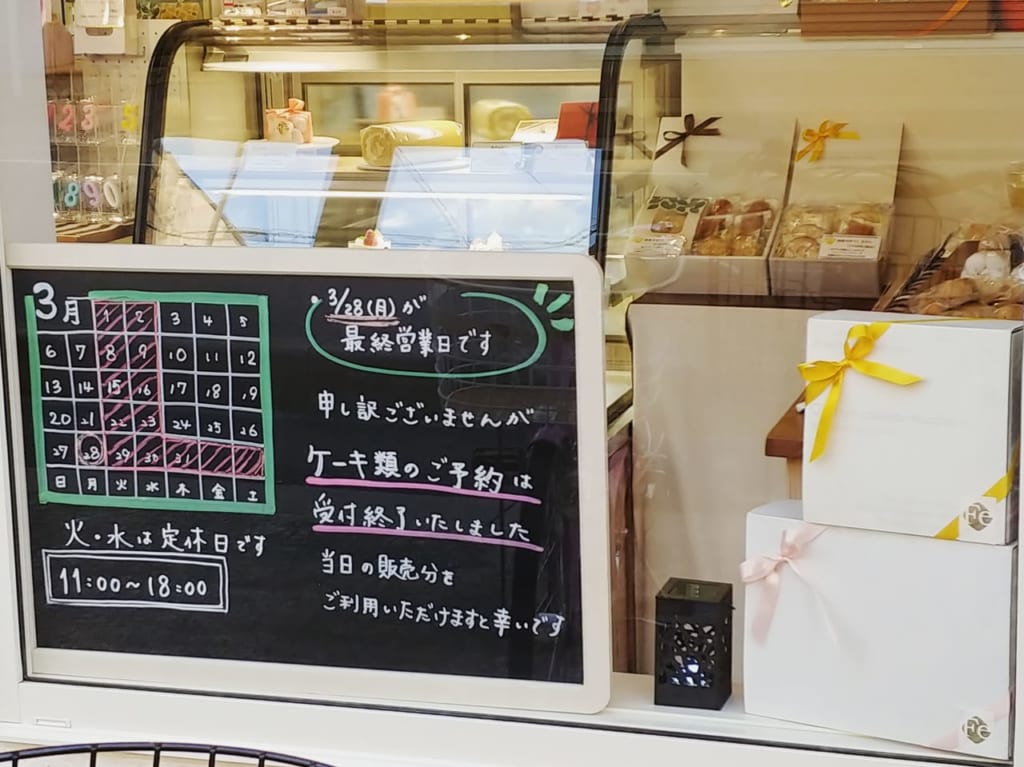 3月
1 2 3 4 5
6 7 8 9 10 11 12
13 14 15 16 17 18 19
20 21 22 23 24 25 26
27 28 29 30 31
日 月 火 水 木 金 土
火・水は定休日です
11:00~18:00
3/28(月)が
最終営業日です
申し訳ございませんが
ケーキ類のご予約は
受付終了いたしました
当日の販売分を
ご利用いただけますと幸いです
2 3 5
8 9 0